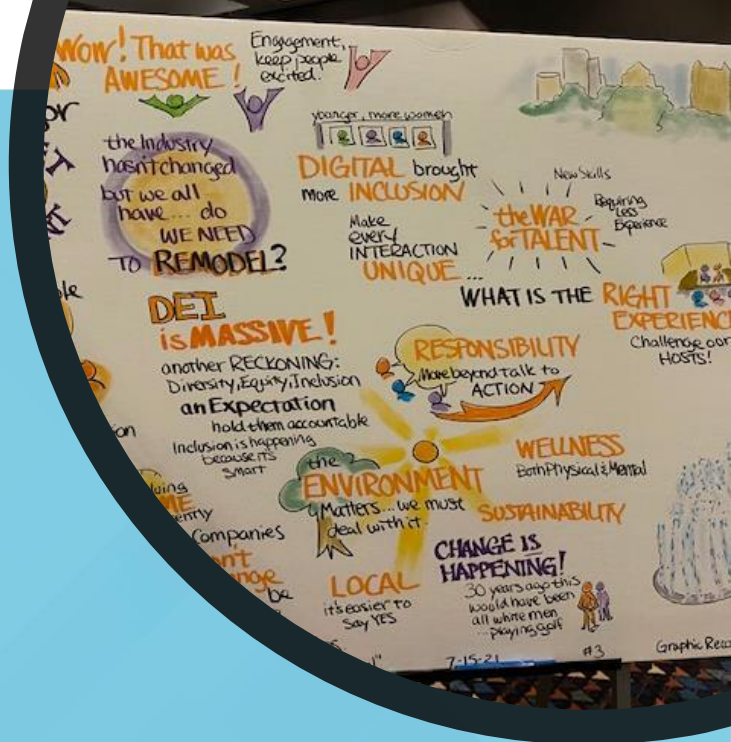 WOW! That was
AWESOME!
Engagement,
keep people
excited.
the Industry
hasn't changed
but we all
have... do
WE NEED
TO REMODEL?
younger, more women
DIGITAL brought
more INCLUSION
Make
every
INTERACTION
UNIQUE...
New Skills
the WAR
for TALENT
Requiring
Less
Experience
WHAT IS THE RIGHT
EXPERIENCE
Challenge our
HOSTS!
DEI
is MASSIVE!
another RECKONING:
Diversity, Equity, Inclusion
an Expectation
hold them accountable
Inclusion is happening
because it's
smart
RESPONSIBILITY
Move beyond talk to
ACTION
the
ENVIRONMENT
Matters... we must
deal with it.
WELLNESS
Both Physical & Mental
SUSTAINABILITY
Companies
be
LOCAL
it's easier to
say YES
CHANGE IS
HAPPENING!
30 years ago this
would have been
all white men
...playing golf
7-15-21
#3
Graphic